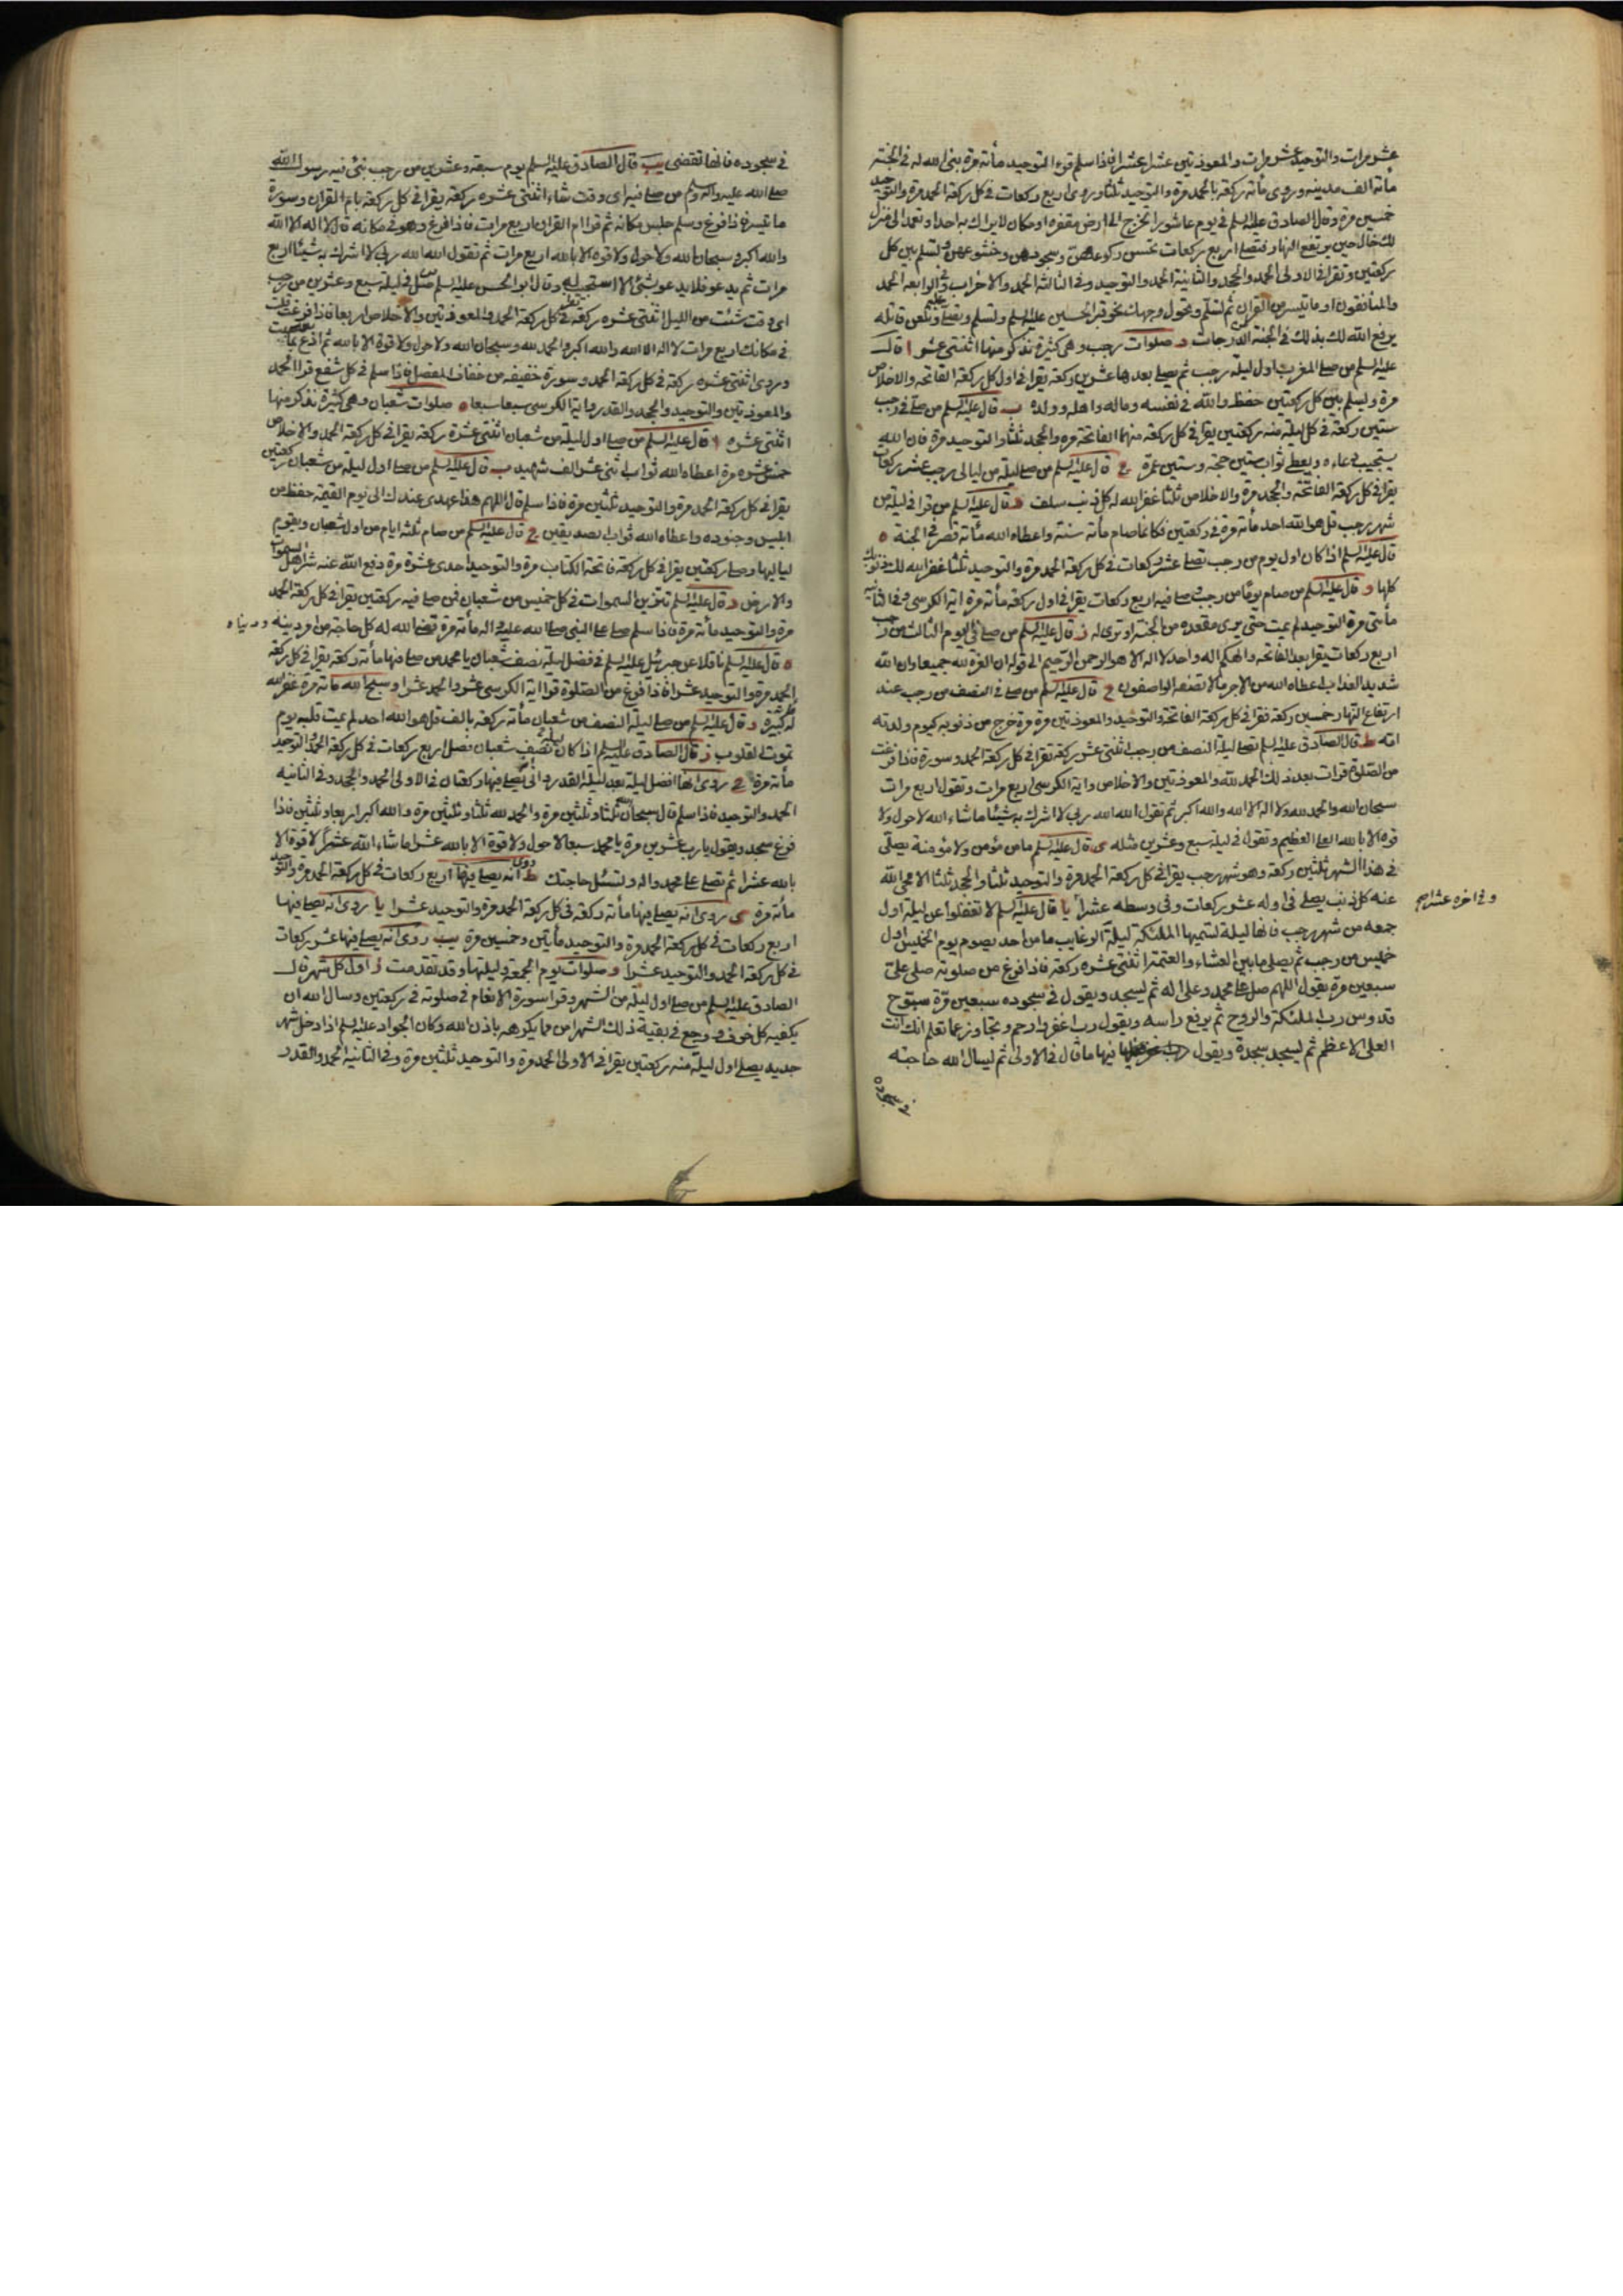 عشر مرات والتوحيد عشر مرات والمعوذتين عشرا عشرا فاذا سلم قرء التوحيد مأته مرة بنى الله له فى الجنة
مأته الف مدينه وروى مأته ركعة بالحمد مرة والتوحيد ثلثا وروى اربع ركعات فى كل ركعة الحمد مرة والتوحيد
خمسين مرة وقال الصادق عليه السلم فى يوم عاشورا تخرج الى ارض مقفرة او مكان لا يراك به احد او تعمد الى منزل
لك خال حين يرتفع النهار فتصلى اربع ركعات تحسن ركوعهن وسجودهن وخشوعهن وتسلم بين كل
ركعتين وتقرا فى الاولى الحمد والجحد والثانية الحمد والتوحيد وفى الثالثه الحمد والاحزاب وفى الرابعه الحمد
والمنافقون او ما تيسر من القران ثم تسلم وتحول وجهك نحو قبر الحسين عليه السلم وتسلم وتصلى عليه وتلعن قاتله
يرفع الله لك بذلك فى الجنة من الدرجات د صلوات رجب وهى كثيرة نذكر منها اثنتى عشر ا قال
عليه السلم من صلى المغرب اول ليلة رجب ثم يصلى بعدها عشرين ركعة يقرا فى اول كل ركعة الفاتحه والاخلاص
مرة ويسلم بين كل ركعتين حفظ والله فى نفسه وماله واهله وولده ب قال عليه السلم من صلى فى رجب
ستين ركعة فى كل ليلة منه ركعتين يقرا فى كل ركعة منهما الفاتحة مره والجحد ثلثا والتوحيد مرة فان الله
يستجيب دعاءه ويعطى ثواب ستين حجة وستين عمرة ج قال عليه السلم من صلى ليلة من ليالى رجب عشر ركعات
يقرا فى كل ركعة الفاتحة والجحد مرة والاخلاص ثلثا غفر الله له كل ذنب سلف د قال عليه السلم من قرا فى ليلة من
شهر رجب قل هو الله احد مأته مرة فى ركعتين فكانما صام مأته سنة واعطاه الله مأته قصر فى الجنة ه
قال عليه السلم اذا كان اول يوم من رجب تصلى عشر ركعات فى كل ركعة الحمد مرة والتوحيد ثلثا غفر الله لك ذنوبك
كلها و قال عليه السلم من صام يوما من رجب وصلى فيه اربع ركعات يقرا فى اول ركعة مأته مرة اية الكرسى وفى الثانيه
مأتى مرة التوحيد لم يمت حتى يرى مقعده من الجنة او ترى له ز قال عليه السلم من صلى فى اليوم الثالث من رجب
اربع ركعات يقرا بعد الفاتحه والهكم اله واحد لا اله الا هو الرحمن الرحيم الى قوله ان القوة لله جميعا وان الله
شديد العذاب اعطاه الله من الاجر ما لا تصفه الواصفون ح قال عليه السلم من صلى فى النصف من رجب عند
ارتفاع النهار خمسين ركعة يقرا فى كل ركعة الفاتحة والتوحيد والمعوذتين مرة مرة خرج من ذنوبه كيوم ولدته
امه ط قال الصادق عليه السلم تصلى ليلة النصف من رجب اثنتى عشر ركعة تقرا فى كل ركعة الحمد وسورة فاذا فرغت
من الصلوة قرات بعد ذلك الحمد لله والمعوذتين والاخلاص واية الكرسى اربع مرات وتقول اربع مرات
سبحان الله والحمد لله ولا اله الا الله والله اكبر ثم تقول الله الله ربى لا اشرك به شيئا ما شاء الله لا حول ولا
قوه الا بالله العلى العظيم وتقول فى ليلة سبع وعشرين مثله ى قال عليه السلم ما من مؤمن ولا مؤمنة يصلى
فى هذا الشهر ثلثين ركعة وهو شهر رجب يقرا فى كل ركعة الحمد مرة والتوحيد ثلثا والجحد ثلثا الا محى الله
عنه كل ذنب يصلى فى اوله عشر ركعات وفى وسطه عشرا يا قال عليه السلم لا تغفلوا عن ليلة اول
وفى اخره عشرا صح
جمعه من شهر رجب فانها ليلة تسميها الملئكة ليلة الرغايب ما من احد يصوم يوم الخميس اول
خميس من رجب ثم يصلى ما بين العشاء والعتمة اثنتى عشره ركعة فاذا فرغ من صلوته صلى على
سبعين مرة يقول اللهم صل على محمد وعلى اله ثم يسجد ويقول فى سجوده سبعين مرة سبوح
قدوس رب الملئكة والروح ثم يرفع راسه ويقول رب اغفر وارحم وتجاوز عما تعلم انك انت
العلى الاعظم ثم يسجد سجدة ويقول فيها ما قال فى الاولى ثم يسال الله حاجته
فى سجوده
فى سجوده فانها تقضى يب قال الصادق عليه السلم يوم سبعة وعشرين من رجب نبئ فيه رسول الله
صلى الله عليه واله وسلم من صلى فيه اى وقت شاء اثنتى عشره ركعة يقرا فى كل ركعة بام القران وسورة
ما تيسر فاذا فرغ وسلم جلس مكانه ثم قرا ام القران اربع مرات فاذا فرغ وهو فى مكانه قال لا اله الا الله
والله اكبر وسبحان الله ولا حول ولا قوه الا بالله اربع مرات ثم تقول الله الله ربى لا اشرك به شيئا اربع
مرات ثم يدعو فلا يدعو بشئ الا استجيب له وقال ابو الحسن عليه السلم صل فى ليلة سبع وعشرين من رجب
اى وقت شئت من الليل اثنتى عشره ركعة تقرا فى كل ركعة الحمد والمعوذتين والاخلاص اربعا فاذا فرغت قلت
فى مكانك اربع مرات لا اله الا الله والله اكبر والحمد لله وسبحان الله ولا حول ولا قوة الا بالله ثم ادع بما
وروى اثنتى عشره ركعة فى كل ركعة الحمد وسورة خفيفه من خفاف المفصل فاذا سلم فى كل شفع قرا الحمد
والمعوذتين والتوحيد والجحد والقدر واية الكرسى سبعا سبعا ه صلوات شعبان وهى كثيرة نذكر منها
اثنتى عشره ا قال عليه السلم من صلى اول ليلة من شعبان اثنتى عشرة ركعة يقرا فى كل ركعة الحمد والاخلاص
خمس عشره مرة اعطاه الله ثواب اثنى عشر الف شهيد ب قال عليه السلم من صلى اول ليلة من شعبان ركعتين
يقرا فى كل ركعة الحمد مرة والتوحيد ثلثين مرة فاذا سلم قال اللهم هذا عهدى عندك الى يوم القيمة حفظ من
ابليس وجنوده واعطاه الله ثواب الصديقين ج قال عليه السلم من صام ثلثة ايام من اول شعبان ويقوم
لياليها وصلى ركعتين يقرا فى كل ركعة فاتحة الكتاب مرة والتوحيد احدى عشرة مرة دفع الله عنه شر اهل السموات
والارض د قال عليه السلم تتزين السموات فى كل خميس من شعبان فمن صلى فيه ركعتين يقرا فى كل ركعة الحمد
مرة والتوحيد مأته مرة فاذا سلم صلى على النبى صلى الله عليه واله مأته مرة قضى الله له كل حاجة من امر دينه ودنياه
ه قال عليه السلم ناقلا عن جبرئيل عليه السلم فى فضل ليلة نصف شعبان يا محمد من صلى فيها مأته ركعة يقرا فى كل ركعة
الحمد مرة والتوحيد عشرا فاذا فرغ من الصلوة قرا اية الكرسى عشر والحمد عشرا وسبح الله مأته مرة غفر الله
له كبيرة و قال عليه السلم من صلى ليلة النصف من شعبان مأته ركعة بالف قل هو الله احد لم يمت قلبه يوم
تموت القلوب ز قال الصادق عليه السلم اذا كان ليلة نصف شعبان فصل اربع ركعات فى كل ركعة الحمد والتوحيد
مأته مرة ح روى انها افضل ليلة بعد ليلة القدر وانه يصلى فيها ركعتان فى الاولى الحمد والجحد وفى الثانيه
الحمد والتوحيد فاذا سلم قال سبحان الله ثلثا وثلثين مرة والحمد لله ثلثا وثلثين مرة والله اكبر اربعا وثلثين فاذا
فرغ سجد ويقول يا رب عشرين مرة يا محمد سبعا لا حول ولا قوة الا بالله عشرا ما شاء الله عشرا لا قوة الا
بالله عشرا ثم تصلى على محمد واله وتسئل حاجتك ط روى انه يصلى فيها اربع ركعات فى كل ركعة الحمد مرة والتوحيد
مأته مرة ى روى انه يصلى فيها مأته ركعة فى كل ركعة الحمد مرة والتوحيد عشرا يا روى انه يصلى فيها
اربع ركعات فى كل ركعة الحمد مرة والتوحيد مأتين وخمسين مرة يب روى انه يصلى فيها عشر ركعات
فى كل ركعة الحمد والتوحيد عشرا و صلوات يوم الجمعة وليلتها وقد تقدمت ز اول كل شهر قال
الصادق عليه السلم من صلى اول ليلة من الشهر وقرا سورة الانعام فى صلوته فى ركعتين وسال الله ان
يكفيه كل خوف ووجع فى بقية ذلك الشهر امن مما يكرهه باذن الله وكان الجواد عليه السلم اذا دخل شهر
جديد يصلى اول ليلة منه ركعتين يقرا فى الاولى الحمد مرة والتوحيد ثلثين مرة وفى الثانية الحمد والقدر